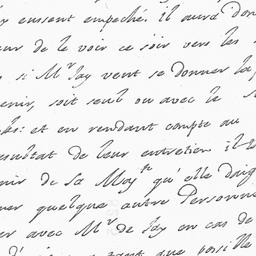 eussent empeché. il aura
de le voir ce soir vers les
si Mr Jay veut se donner la
venir, soit seul ou avec le
et en rendant compte au
resultat de leur entretien il
de sa Majte qu'elle daig
quelque autre Personne
avec Mr de Jay en cas de
tant que possible